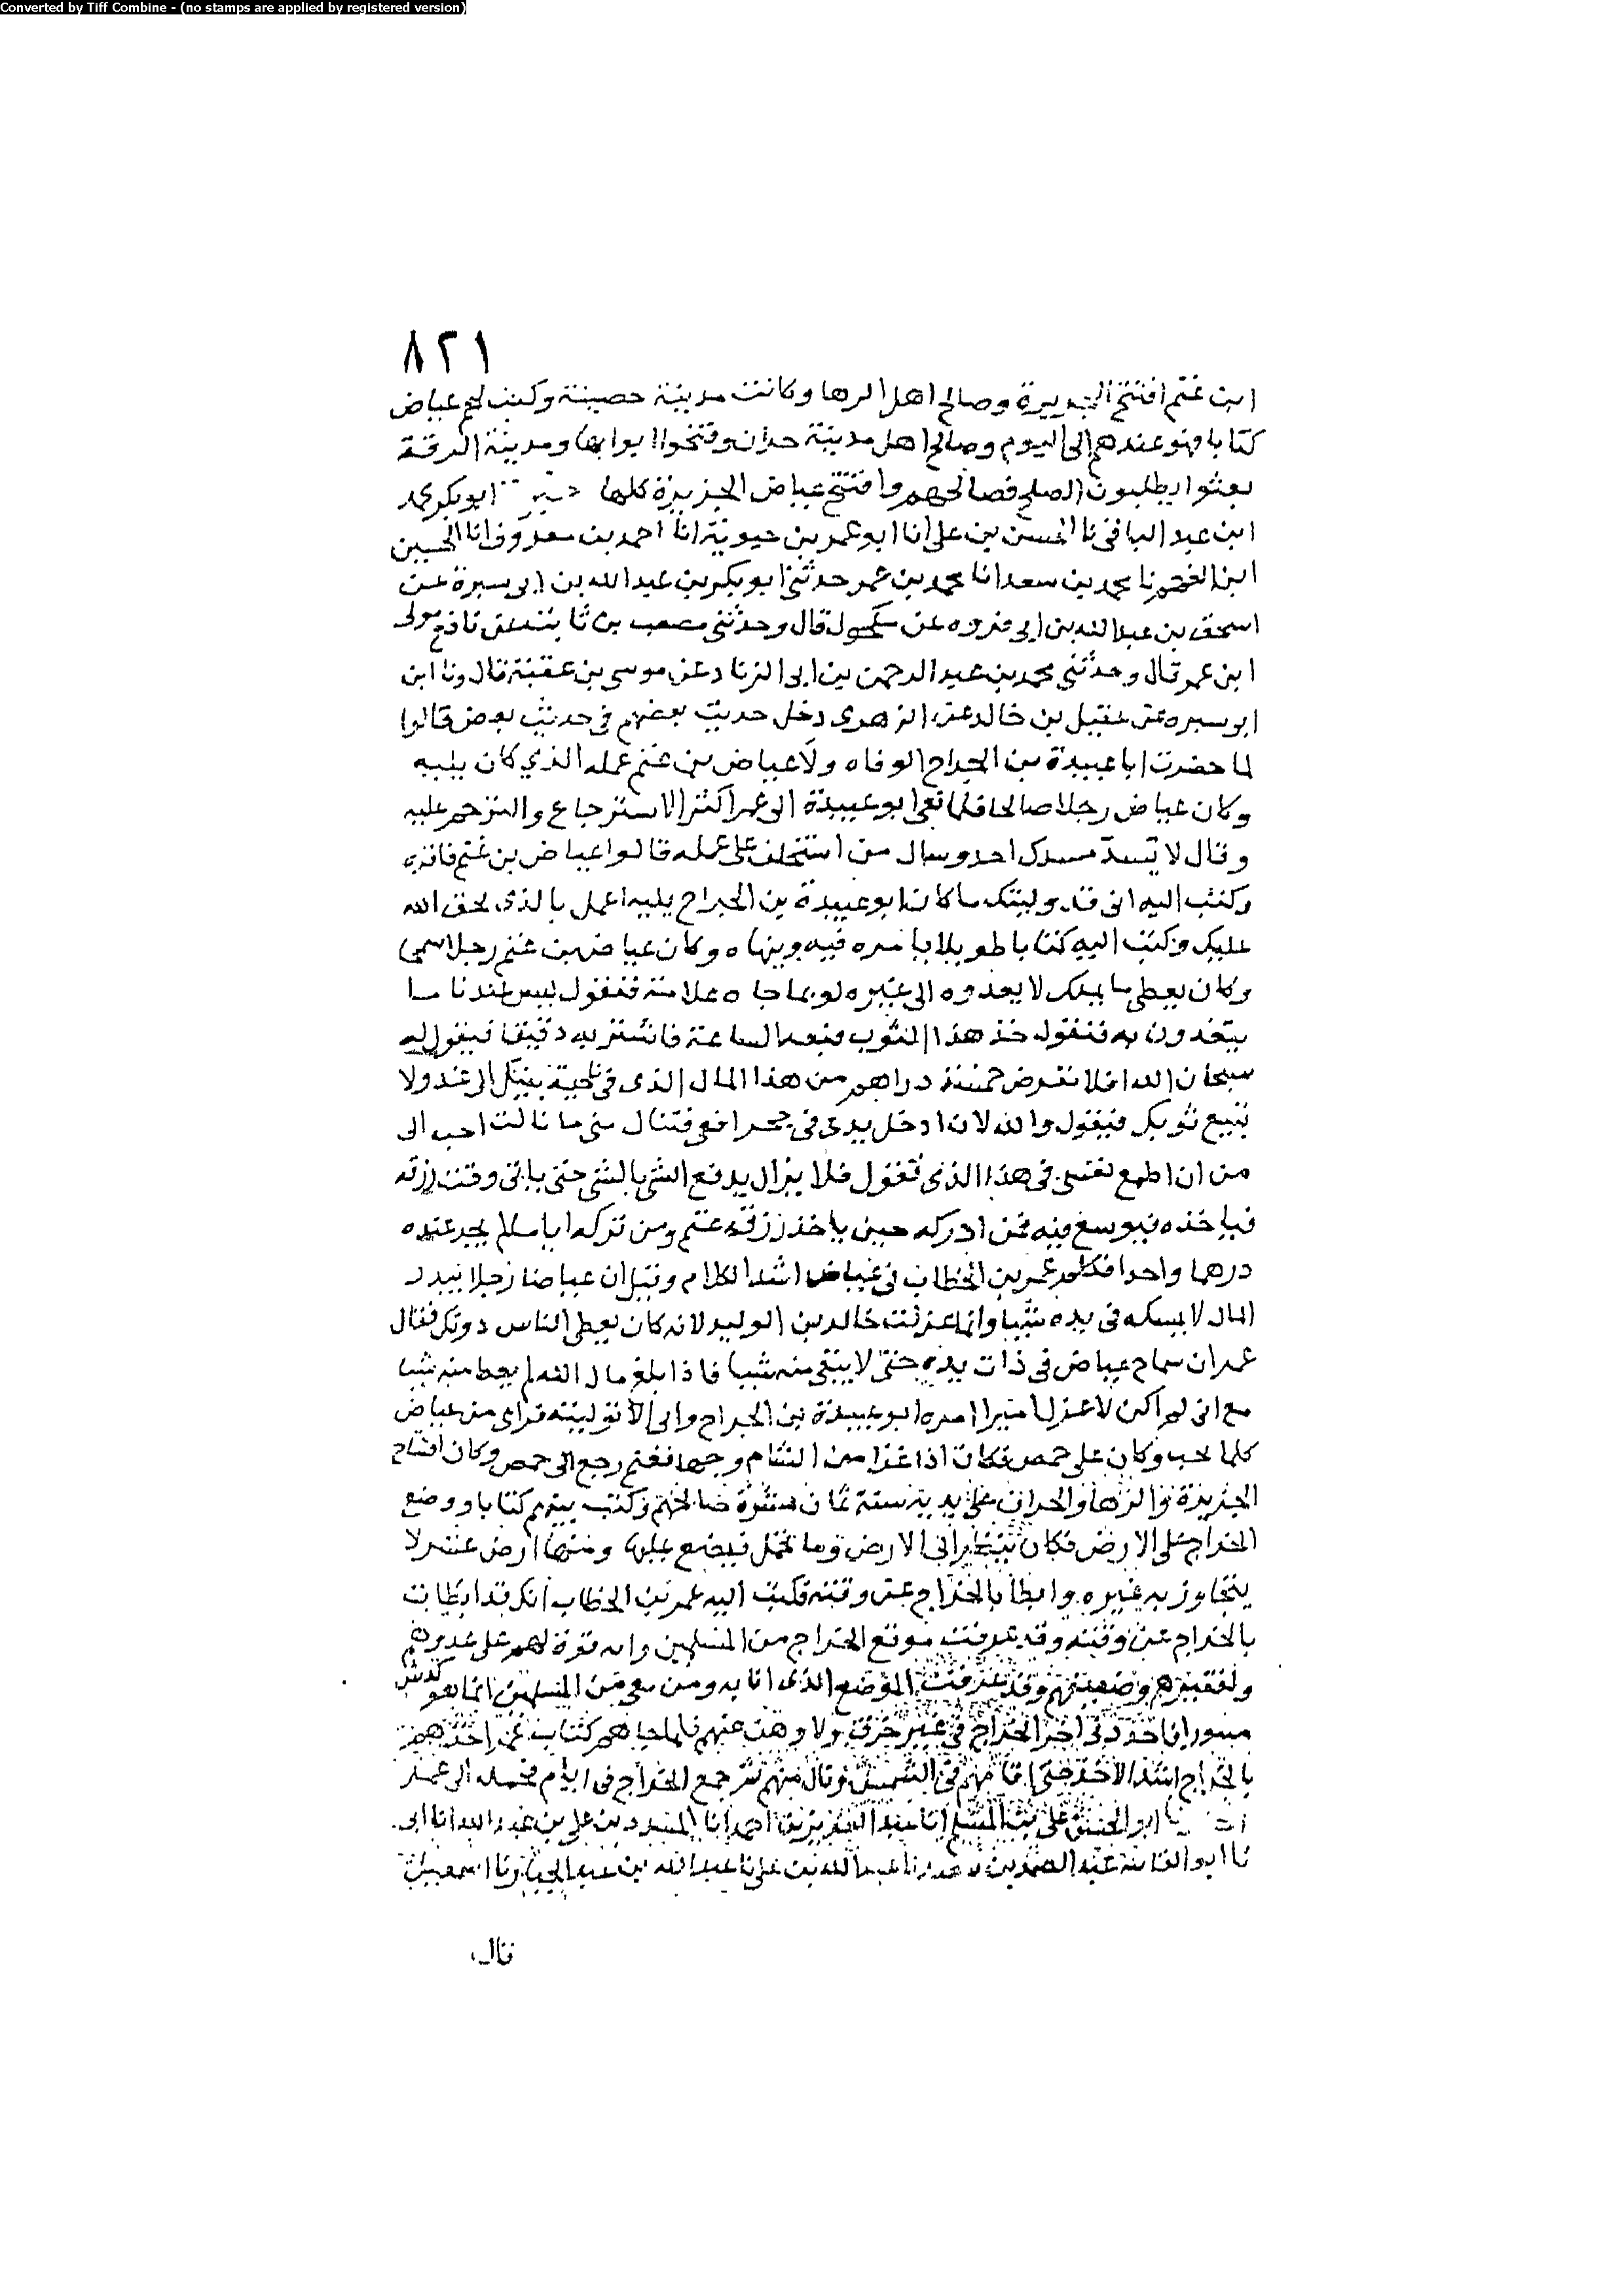 Converted by Tiff Combine - (no stamps are applied by registered version)
٨٢١
ابن غنم افتتح الجزيرة وصالح اهل الرها وكانت مدينة حصينة وكتب لهم عياض
كتابا فهو عندهم الى اليوم وصالح اهل مدينة حران وفتحوا ابوابها ومدينة الرقة
بعثوا يطلبون الصلح فصالحهم وافتتح عياض الجزيرة كلها ابو بكر محمد
ابن عبد الباقي نا الحسن بن علي انا ابو عمر بن حيوية انا احمد بن معروف انا الحسين
ابن الفهم نا محمد بن سعد انا محمد بن عمر حدثني ابو بكر بن عبد الله بن ابي سبرة عن
اسحق بن عبد الله بن ابي فروه عن مكحول قال وحدثني مصعب بن ثابت عن نافع مولى
ابن عمر قال وحدثني محمد بن عبد الرحمن بن ابي الزناد عن موسى بن عقبة قال ونا ابن
ابو سبره عن عقيل بن خالد عن الزهرى دخل حديث بعضهم في حديث بعض قالوا
لما حضرت ابا عبيدة بن الجراح الوفاه ولا عياض بن غنم عمله الذي كان يليه
وكان عياض رجلا صالحا فلما نعى ابو عبيدة الى عمر اكثر الاسترجاع والترحم عليه
وقال لا يسد مسدك احد وسال من استخلف على عمله قالوا عياض بن غنم فاقره
وكتب اليه انى قد وليتك ما كان ابو عبيدة بن الجراح يليه اعمل بالذى يحق الله
عليك وكتب اليه كتابا طويلا يامره فيه وينهاه وكان عياض بن غنم رجلا سمحا
وكان يعطى ما يملك لا يعدوه الى غيره لربما جاه غلامه فيقول ليس عندنا ما
يتغدون به فيقول خذ هذا الثوب فبعه الساعة فاشتر به دقيقا فيقول له
سبحان الله افلا نقرض خمسة دراهم من هذا المال الذى في ناحية بيتك الى غد ولا
تبيع ثوبك فيقول والله لان ادخل يدى في جحر افعى فتنال منى ما نالت احب الى
من ان اطمع نفسى في هذا الذى تقول فلا يزال يدفع الشى بالشى حتى ياتى وقت رزقه
فياخذه فيوسع فيه فمن ادركه حين ياخذ رزقه غنم ومن تركه اياما لم يجد عنده
درهما واحدا فكلم عمر بن الخطاب في عياض اشد الكلام وقيل ان عياضا رجلا يبدر
المال لا يمسكه في يده شيا وانما عزلت خالد بن الوليد لانه كان يعطى الناس دونك فقال
عمر ان سماح عياض في ذات يده حتى لا يبقى منه شيا فاذا بلغ مال الله لم يعط منه شيا
مع انى لم اكن لاعزل اميرا امره ابو عبيدة بن الجراح وابى الا توليته فراى من عياض
كلما يحب وكان على حمص فكان اذا غزا من الشام وجها فغنم رجع الى حمص وكان افتتاح
الجزيرة والرها والحران على يديه سنة ثمان عشرة صالحهم وكتب بينهم كتابا ووضع
الخراج على الارض فكان ينظر الى الارض وما تحمل فيضع عليها ومنها ارض عشر لا
يتجاوز به غيره وابطا بالخراج عن وقته فكتب اليه عمر بن الخطاب انك قد ابطات
بالخراج عن وقته وقد عرفت موقع الخراج من المسلمين وانه قوة لهم على عدوهم
ولفقيرهم وضعيفهم وقد عرفت الموضع الذى انا به ومن معى من المسلمين انما هو كدش
اجر الخراج في غير خرق ولا وهن عنهم فلما جاهم كتاب عمر اخذهم
بالخراج اشد الاخذ حتى اقامهم في الشمس ونال منهم ثم جمع الخراج في ايام فحمله الى عمر
ابو الحسن على بن المسلم انا عبد العزيز بن احمد انا المسدد بن علي بن عبد الله انا ابى
نا ابو القاسم عبد الصمد بن نا عبد الله بن علي نا عبد الله بن عبد الجبار نا اسمعيل
قال